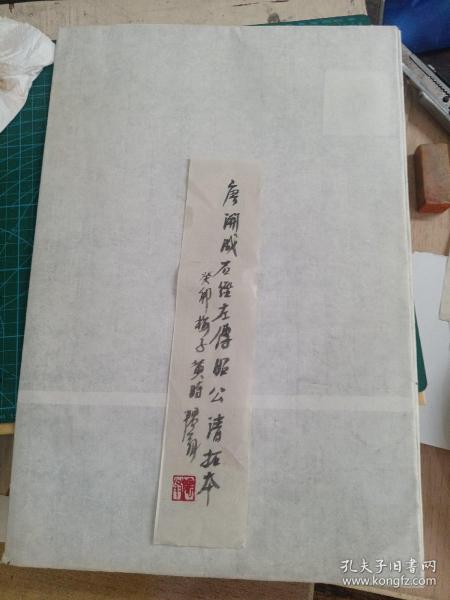 唐開成石經左傳昭公清拓本
癸卯梅子黃時
孔夫子旧书网
www.kongfz.com